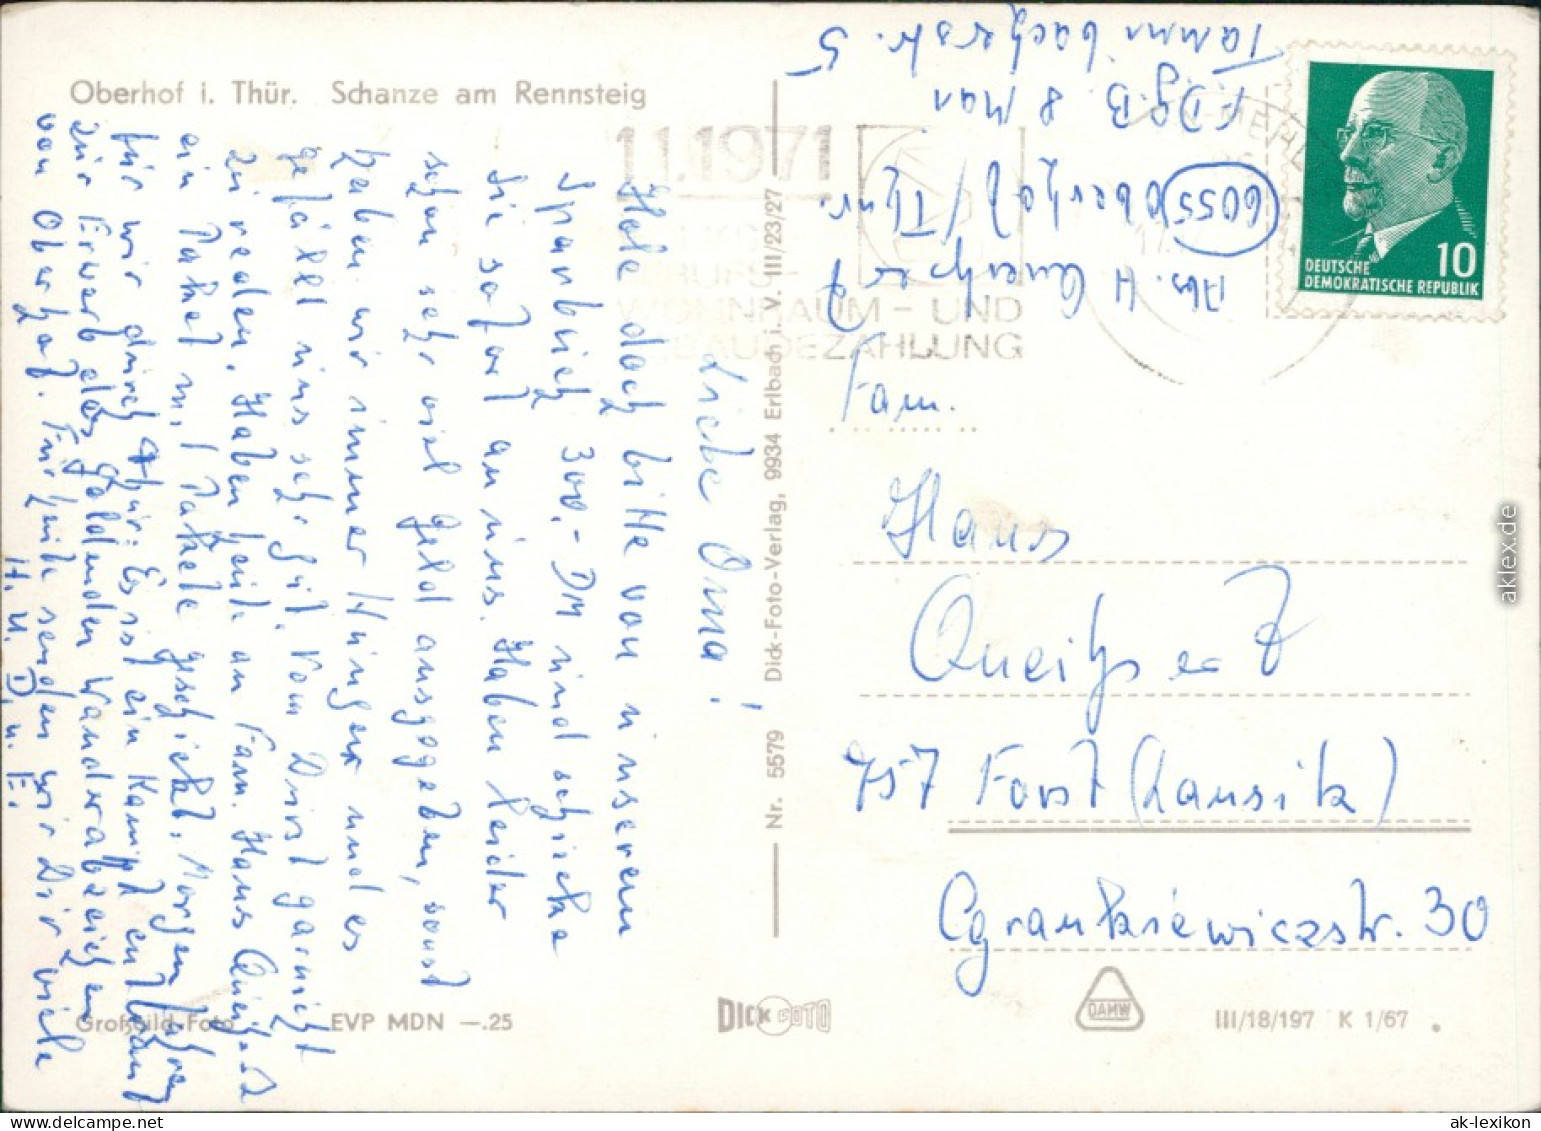 Oberhof i. Thür. Schanze am Rennsteig
Liebe Oma!
Hole doch bitte von unserem
Sparbuch 300,- DM und schicke
sie sofort an uns. Haben leider
schon sehr viel Geld ausgegeben, sonst
haben wir immer Hunger und es
gefällt uns sehr gut. Vom Durst garnicht
zu reden. Haben heute an Fam. Hans
ein Paket m. geschickt. Morgen fahren
wir durch Es ist ein Kampf entbrannt
zur Erwerb des goldenen Wanderabzeichen
von Oberhof. Für heute senden wir Dir viele
H. u. D. u. E.
Großbild-Foto EVP MDN —.25
Nr. 5579 Dick-Foto-Verlag, 9934 Erlbach i. V. III/23/27
DICK FOTO
Abs. H
6055 Oberhof/Thür.
F.D.G.B. 8 Mai
Tambacherstr. 5
1.1.1971
BERUFS-
WOHNRAUM - UND
GEBÄUDEZÄHLUNG
10
DEUTSCHE
DEMOKRATISCHE REPUBLIK
Fam.
Hans
757 Forst (Lausitz)
30
DAMW
III/18/197 K 1/67
aklex.de
ak-lexikon.com